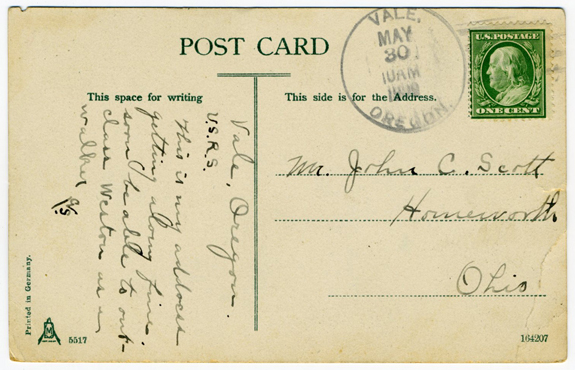 POST CARD
VALE,
MAY
30
10AM
OREGON.
U.S. POSTAGE
ONE CENT
This space for writing
This side is for the Address.
Vale, Oregon.
U.S.R.S.
This is my address
getting along fine.
soon be able to out-
class Weston as a
walker
Mr. John C. Scott
Homeworth
Ohio
Printed in Germany.
5517
164207